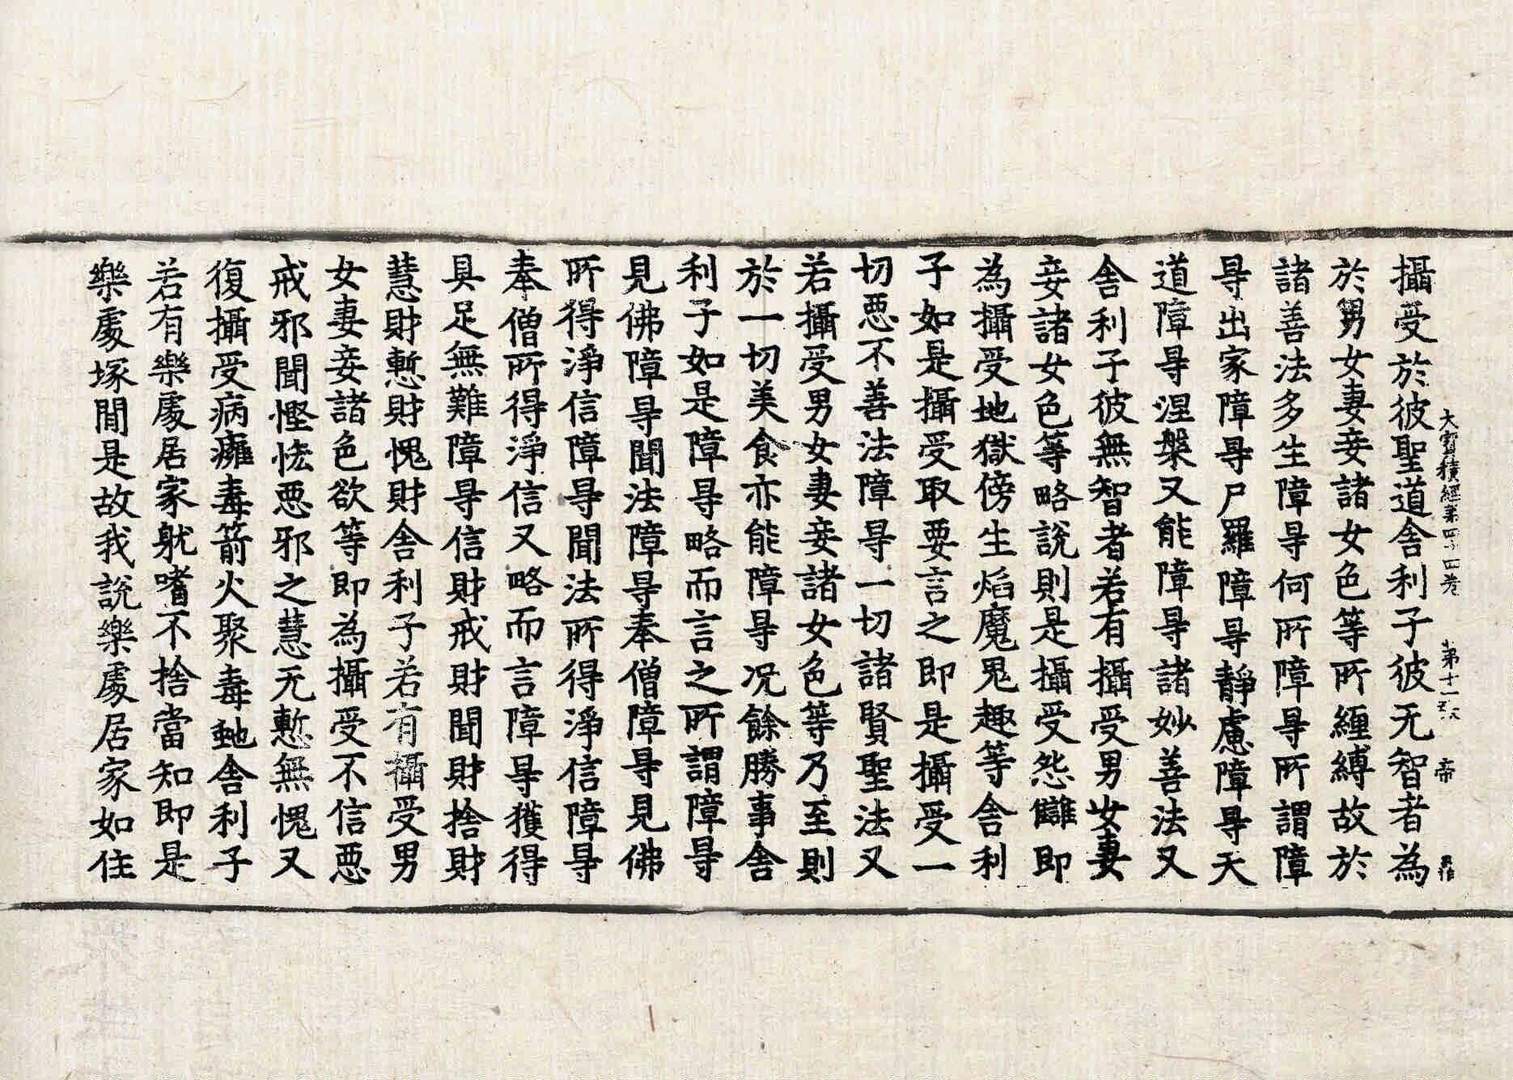 大寶積經第四十四卷 第十一張 帝
攝受於彼聖道舍利子彼无智者為
於男女妻妾諸女色等所纏縛故於
諸善法多生障㝵何所障㝵所謂障
㝵出家障㝵尸羅障㝵靜慮障㝵天
道障㝵涅槃又能障㝵諸妙善法又
舍利子彼無智者若有攝受男女妻
妾諸女色等略說則是攝受怨讎即
為攝受地獄傍生焰魔鬼趣等舍利
子如是攝受取要言之即是攝受一
切惡不善法障㝵一切諸賢聖法又
若攝受男女妻妾諸女色等乃至則
於一切美食亦能障㝵况餘勝事舍
利子如是障㝵略而言之所謂障㝵
見佛障㝵聞法障㝵奉僧障㝵見佛
所得淨信障㝵聞法所得淨信障㝵
奉僧所得淨信又略而言障㝵獲得
具足無難障㝵信財戒財聞財捨財
慧財慙財愧財舍利子若有攝受男
女妻妾諸色欲等即為攝受不信惡
戒邪聞慳悋惡邪之慧无慙無愧又
復攝受病癰毒箭火聚毒虵舍利子
若有樂處居家躭嗜不捨當知即是
樂處塚間是故我說樂處居家如住